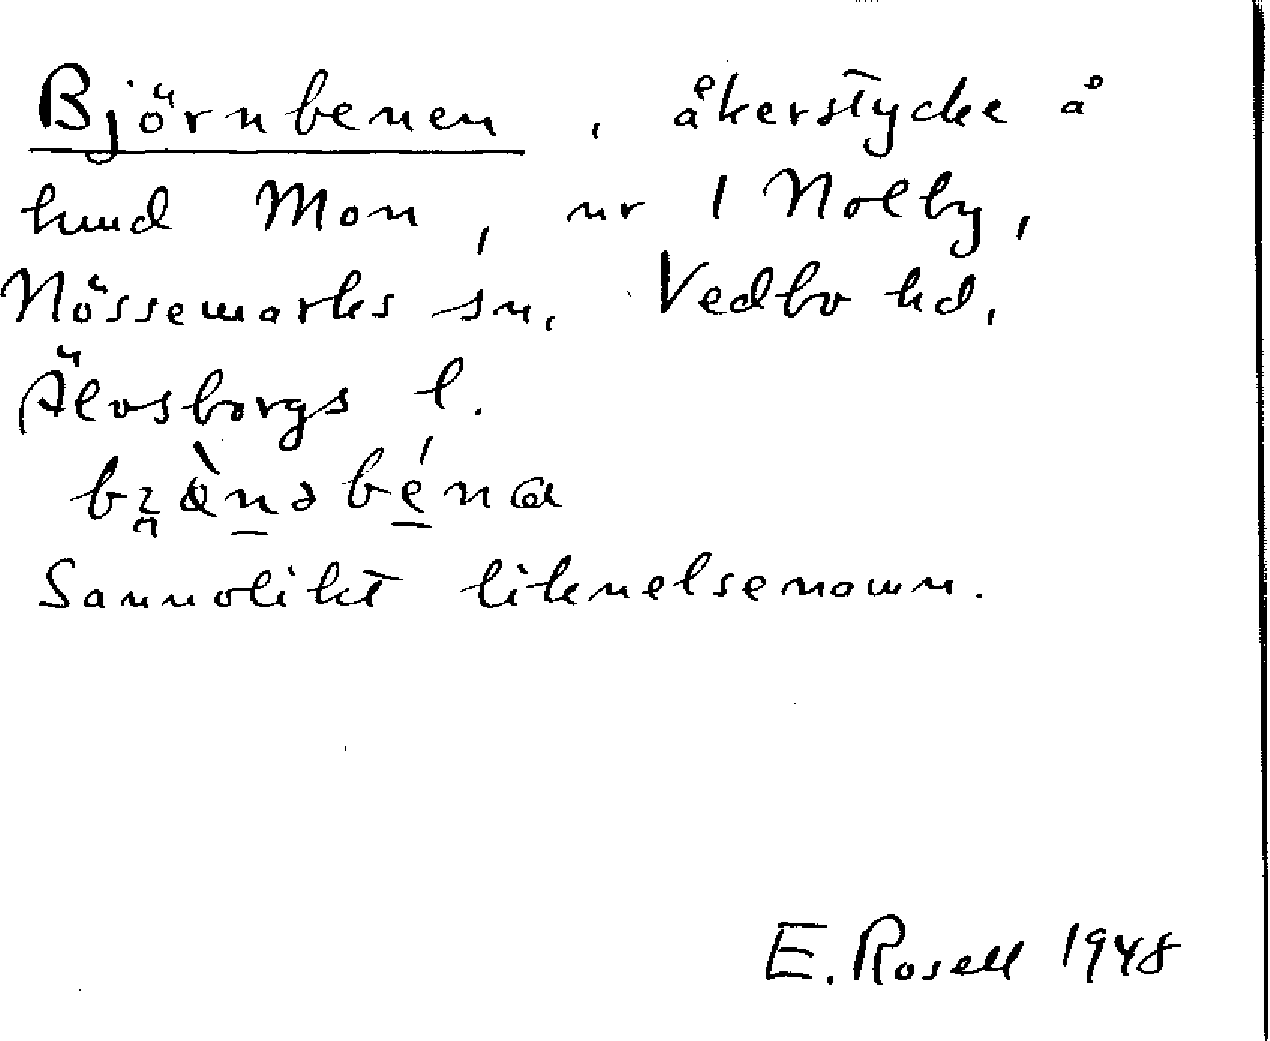 Björnbenen, åkerstycke å
hmd Mon, nr 1 Nolby,
Nössemarks sn, Vedbo hd,
Älvsborgs l.
Sannolikt liknelsenamn.
E. Rosell 1948